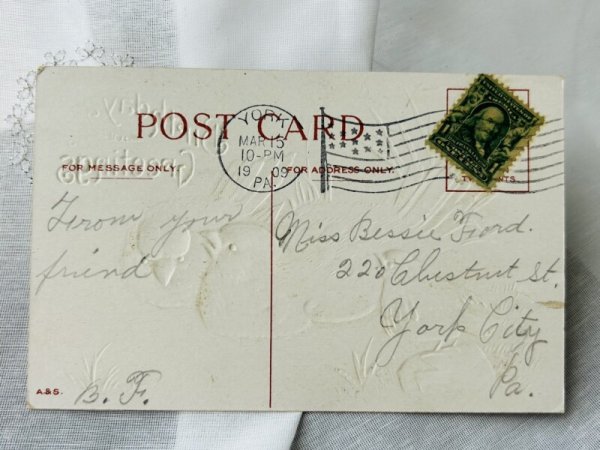 POST CARD
YORK
MAR 15
10-PM
19 09
PA.
FOR MESSAGE ONLY.
FOR ADDRESS ONLY.
From your
friend
B. F.
Miss Bessie Ford.
220 Chestnut St.
York City
Pa.
A.&S.
Greetings